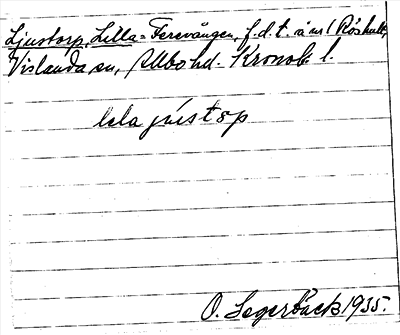 Ljustorp, Lilla = Ferevången, f.d.t. å nr 1 Röshult,
Vislanda sn, Allbo hd. Kronob. l.
lɩla jústɔp
O. Segerbäck 1935.